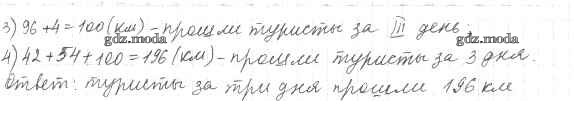 3) 96 + 4 = 100 (км) - прошли туристы за III день.
gdz.moda gdz.moda
4) 42 + 54 + 100 = 196 (км) - прошли туристы за 3 дня.
Ответ: туристы за три дня прошли 196 км